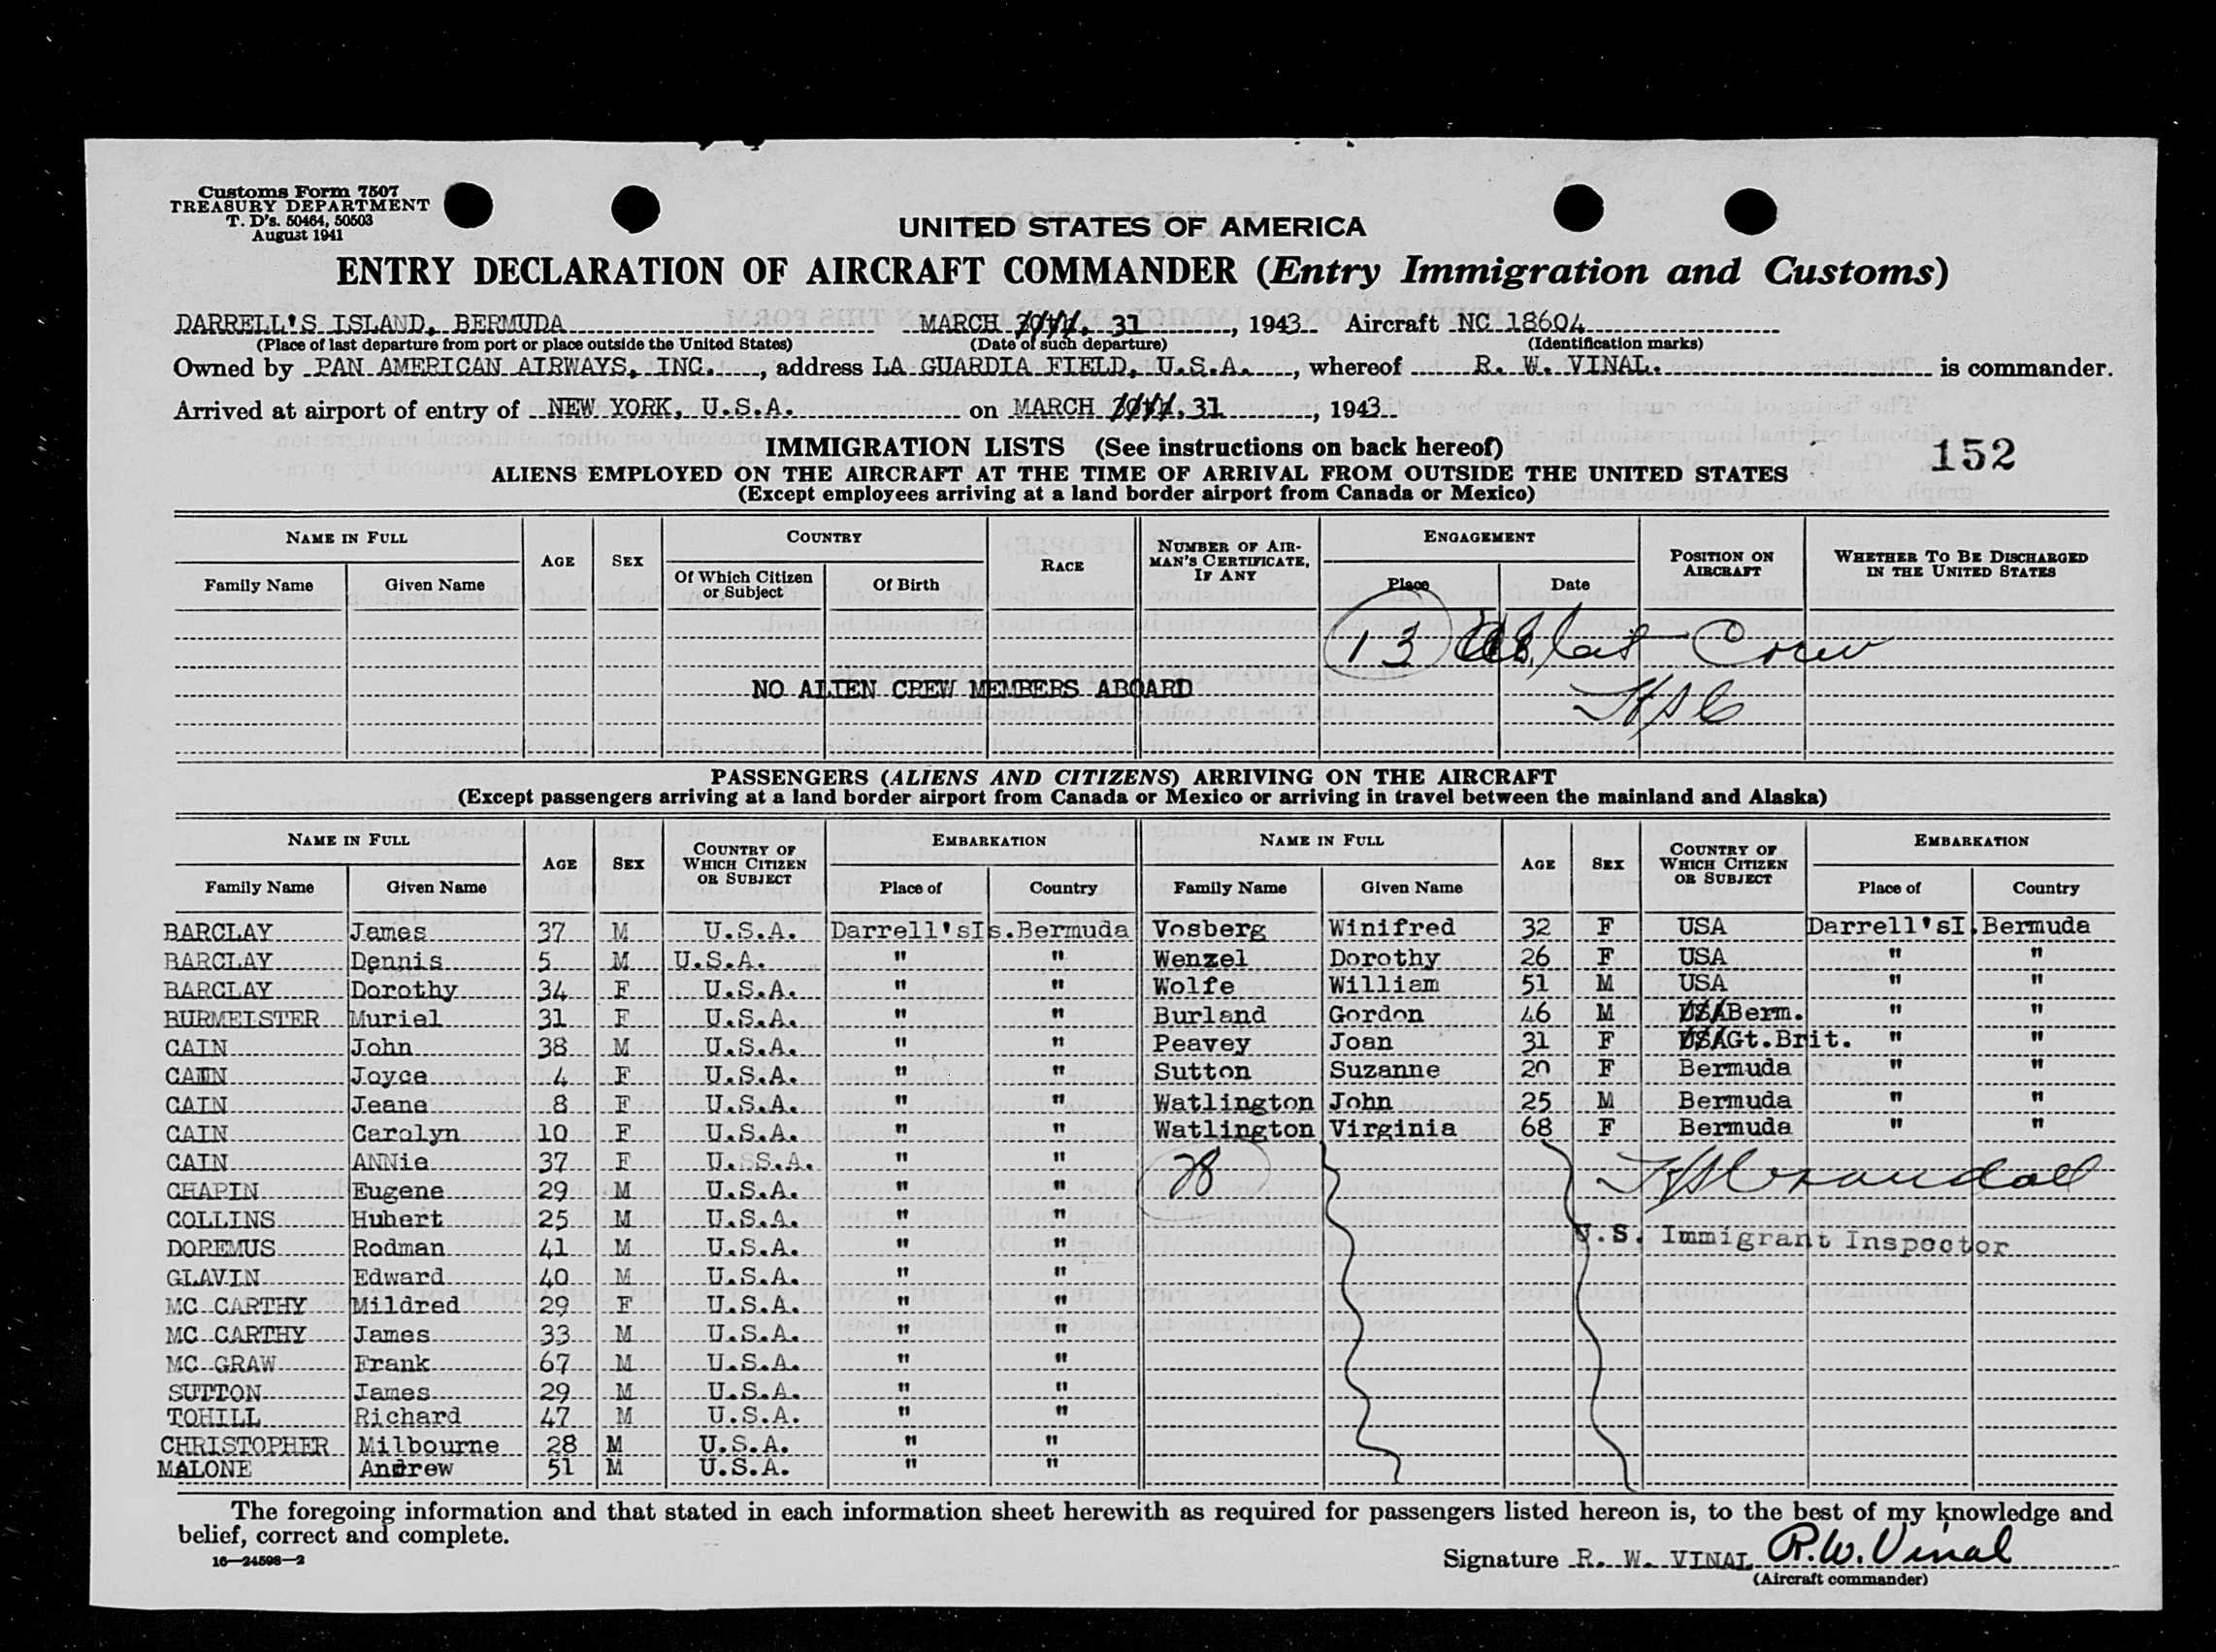 Customs Form 7507
TREASURY DEPARTMENT
T. D's. 50464, 50503
August 1941
UNITED STATES OF AMERICA
ENTRY DECLARATION OF AIRCRAFT COMMANDER (Entry Immigration and Customs)
DARRELL'S ISLAND, BERMUDA MARCH 31, 1943 Aircraft NC 18604
(Place of last departure from port or place outside the United States) (Date of such departure) (Identification marks)
Owned by PAN AMERICAN AIRWAYS, INC., address LA GUARDIA FIELD, U.S.A., whereof R. W. VINAL. is commander.
Arrived at airport of entry of NEW YORK, U.S.A. on MARCH 31, 1943
IMMIGRATION LISTS (See instructions on back hereof)
152
ALIENS EMPLOYED ON THE AIRCRAFT AT THE TIME OF ARRIVAL FROM OUTSIDE THE UNITED STATES
(Except employees arriving at a land border airport from Canada or Mexico)
NAME IN FULL AGE SEX COUNTRY RACE NUMBER OF AIRMAN'S CERTIFICATE, IF ANY ENGAGEMENT POSITION ON AIRCRAFT WHETHER TO BE DISCHARGED IN THE UNITED STATES
Family Name Given Name Of Which Citizen or Subject Of Birth Place Date
13 Crew
NO ALIEN CREW MEMBERS ABOARD
PASSENGERS (ALIENS AND CITIZENS) ARRIVING ON THE AIRCRAFT
(Except passengers arriving at a land border airport from Canada or Mexico or arriving in travel between the mainland and Alaska)
NAME IN FULL AGE SEX COUNTRY OF WHICH CITIZEN OR SUBJECT EMBARKATION NAME IN FULL AGE SEX COUNTRY OF WHICH CITIZEN OR SUBJECT EMBARKATION
Family Name Given Name Place of Country Family Name Given Name Place of Country
BARCLAY James 37 M U.S.A. Darrell'sIs.Bermuda Vosberg Winifred 32 F USA Darrell'sI.Bermuda
BARCLAY Dennis 5 M U.S.A. " " Wenzel Dorothy 26 F USA " "
BARCLAY Dorothy 34 F U.S.A. " " Wolfe William 51 M USA " "
BURMEISTER Muriel 31 F U.S.A. " " Burland Gordon 46 M USABerm. " "
CAIN John 38 M U.S.A. " " Peavey Joan 31 F USAGt.Brit. " "
CAIN Joyce 4 F U.S.A. " " Sutton Suzanne 20 F Bermuda " "
CAIN Jeane 8 F U.S.A. " " Watlington John 25 M Bermuda " "
CAIN Carolyn 10 F U.S.A. " " Watlington Virginia 68 F Bermuda " "
CAIN ANNie 37 F U.S.A. " "
CHAPIN Eugene 29 M U.S.A. " " 28
COLLINS Hubert 25 M U.S.A. " "
DOREMUS Rodman 41 M U.S.A. " " U.S. Immigrant Inspector
GLAVIN Edward 40 M U.S.A. " "
MC CARTHY Mildred 29 F U.S.A. " "
MC CARTHY James 33 M U.S.A. " "
MC GRAW Frank 67 M U.S.A. " "
SUTTON James 29 M U.S.A. " "
TOHILL Richard 47 M U.S.A. " "
CHRISTOPHER Milbourne 28 M U.S.A. " "
MALONE Andrew 51 M U.S.A. " "
The foregoing information and that stated in each information sheet herewith as required for passengers listed hereon is, to the best of my knowledge and
belief, correct and complete.
16—24598—2
Signature R. W. VINAL R.W. Vinal
(Aircraft commander)